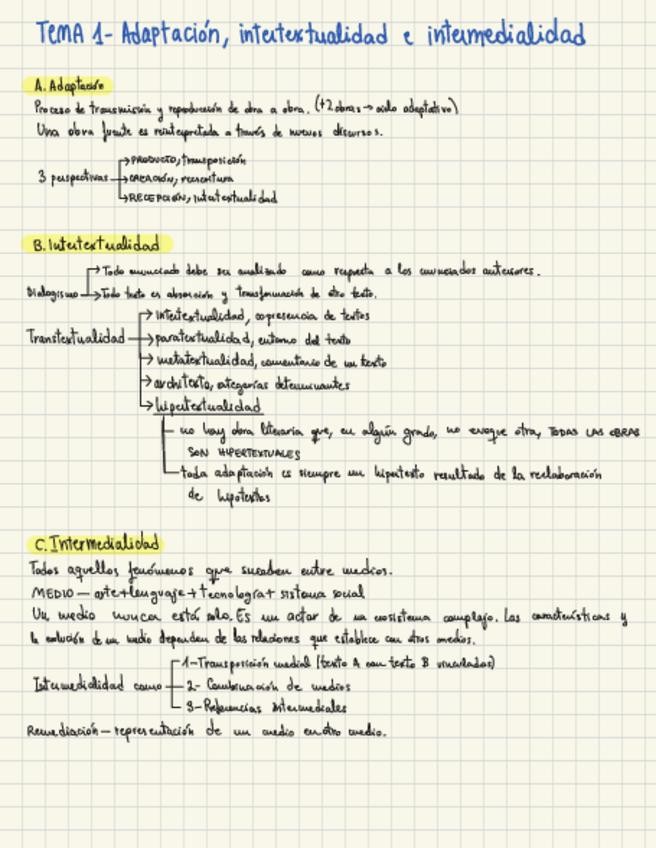 TEMA 1- Adaptación, intertextualidad e intermedialidad
A. Adaptación
Proceso de transmisión y reproducción de obra a obra. (+2 obras → ciclo adaptativo)
Una obra fuente es reinterpretada a través de nuevos discursos.
3 perspectivas
→ PRODUCTO, transposición
→ CREACIÓN, reescritura
→ RECEPCIÓN, intertextualidad
B. Intertextualidad
Dialogismo
→ Todo enunciado debe ser analizado como respuesta a los enunciados anteriores.
→ Todo texto es absorción y transformación de otro texto.
Transtextualidad
→ intertextualidad, copresencia de textos
→ paratextualidad, entorno del texto
→ metatextualidad, comentario de un texto
→ architexto, categorías determinantes
→ hipertextualidad
no hay obra literaria que, en algún grado, no evoque otra, TODAS LAS OBRAS
SON HIPERTEXTUALES
toda adaptación es siempre un hipertexto resultado de la reelaboración
de hipotextos
C. Intermedialidad
Todos aquellos fenómenos que suceden entre medios.
MEDIO — arte+lenguaje+tecnología+ sistema social
Un medio nunca está solo. Es un actor de un ecosistema complejo. Las características y
la evolución de un medio dependen de las relaciones que establece con otros medios.
Intermedialidad como
1- Transposición medial (texto A con texto B vinculados)
2- Combinación de medios
3- Referencias intermediales
Remediación — representación de un medio en otro medio.